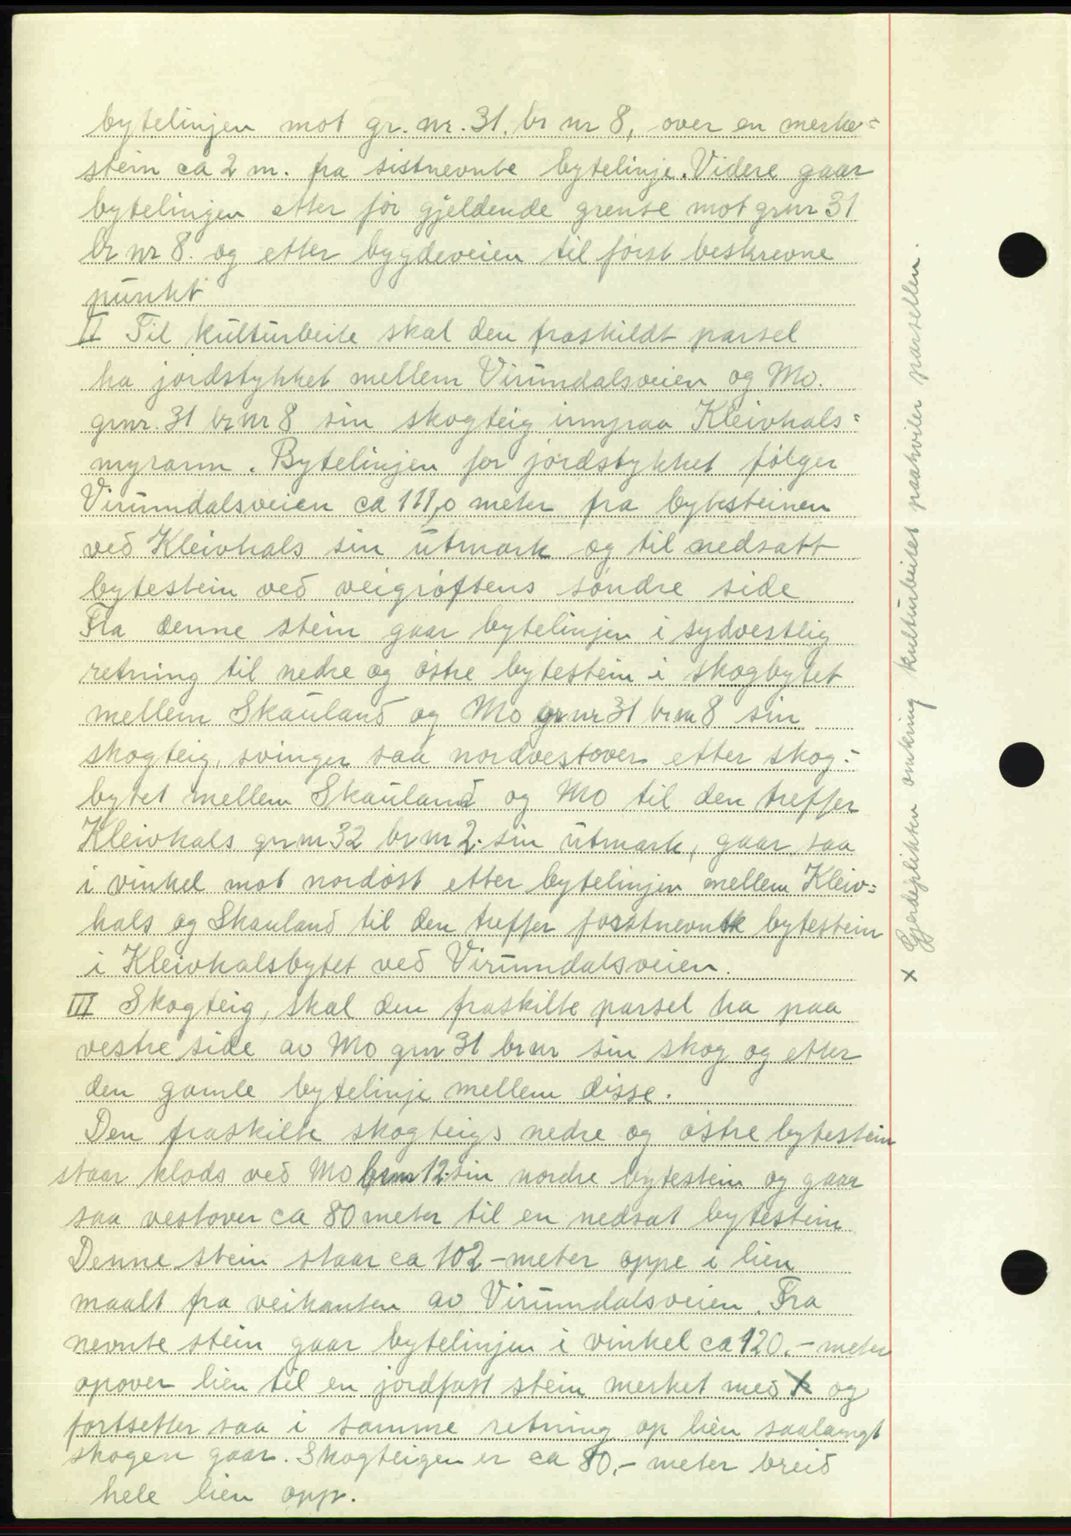 bytelinjen mot gr. nr. 31. br nr 8, over en merke=
stein ca 2 m. fra sistnevnte bytelinje. Videre gaar
bytelinjen etter før gjeldende grense mot grnr 31
br nr 8. og etter bygdeveien til først beskrevne
punkt
II Til kulturbeite skal den fraskildt parsel
ha jordstykket mellem Virumdalsveien og Mo.
grnr. 31 br nr 8 sin skogteig innpaa Kleivhals=
myrann. Bytelinjen for jordstykket følger
Virumdalsveien ca 111,0 meter fra byksteinen
ved Kleivhals sin utmark og til nedsatt
bytestein ved veigrøftens søndre side
Fra denne stein gaar bytelinjen i sydvestlig
retning til nedre og østre bytestein i skogbytet
mellem Skauland og Mo grnr 31 brnr 8 sin
skogteig, svinger saa nordvestover etter skog=
bytet mellem Skauland og Mo til den treffer
Kleivhals grnr 32 br nr 2. sin utmark, gaar saa
i vinkel mot nordøst etter bytelinjen mellem Kleiv=
hals og Skauland til den treffer førstnevnte bytestein
i Kleivhalsbytet ved Virumdalsveien.
III Skogteig, skal den fraskilte parsel ha paa
vestre side av Mo grnr 31 brnr sin skog og etter
den gamle bytelinje mellem disse.
Den fraskilte skogteigs nedre og østre bytestein
staar klods ved Mo brnr 12. sin nordre bytestein og gaar
saa vestover ca 80 meter til en nedsat bytestein
Denne stein staar ca 102 - meter oppe i lien
maalt fra veikanten av Virumdalsveien. Fra
nevnte stein gaar bytelinjen i vinkel ca 120. - meter
opover lien til en jordfast stein merket med X og
fortsetter saa i samme retning op lien saalangt
skogen gaar. Skogteigen er ca 80,- meter breid
hele lien opp.
x Gjerdeplikten omkring kulturbeitet paahviler parsellen.